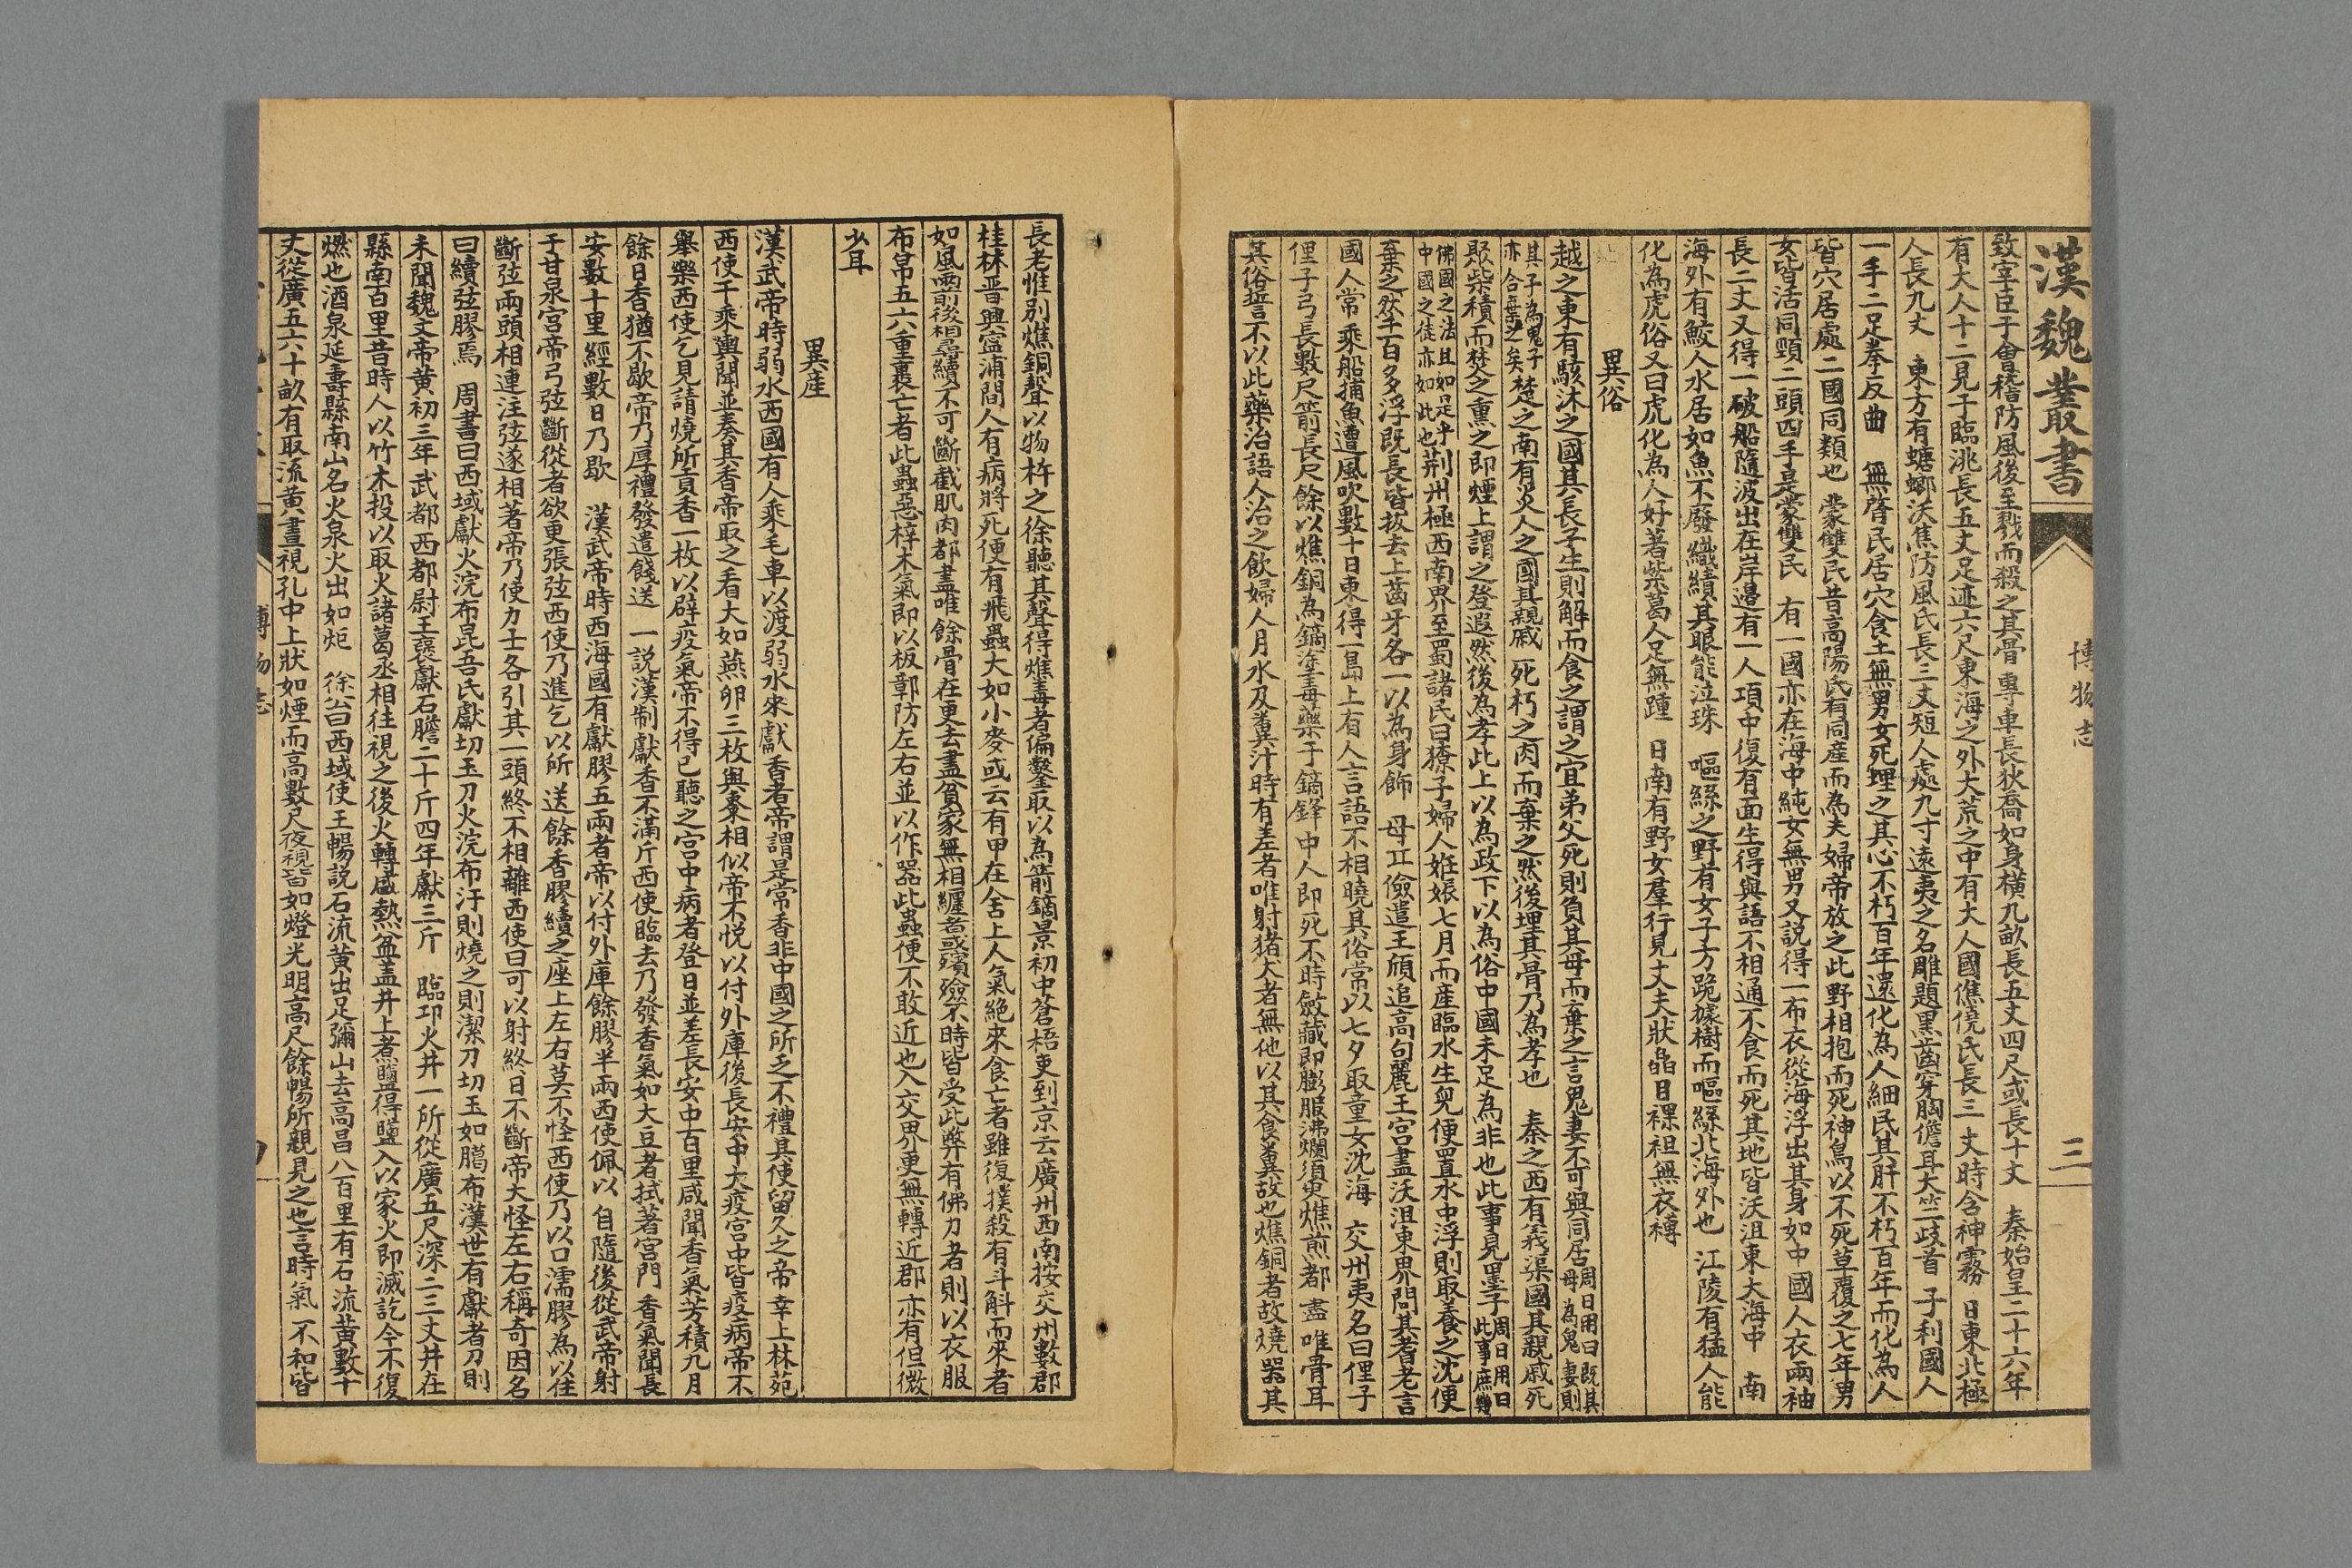 漢魏叢書
博物志
三
致宰臣于會稽防風後至戮而殺之其骨專車長狄喬如身橫九畝長五丈四尺或長十丈　秦始皇二十六年
有大人十二見于臨洮長五丈足迹六尺東海之外大荒之中有大人國僬僥氏長三丈時含神霧　日東北極
人長九丈　東方有螗螂沃焦防風氏長三丈短人處九寸遠夷之名雕題黑齒穿胸儋耳大竺歧首　子利國人
一手二足拳反曲　無膂民居穴食土無男女死埋之其心不朽百年還化為人細民其肝不朽百年而化為人
皆穴居處二國同類也　蒙雙民昔高陽氏有同産而為夫婦帝放之此野相抱而死神鳥以不死草覆之七年男
女皆活同頸二頭四手是蒙雙民　有一國亦在海中純女無男又説得一布衣從海浮出其身如中國人衣兩袖
長二丈又得一破船隨波出在岸邊有一人項中復有面生得與語不相通不食而死其地皆沃沮東大海中　南
海外有鮫人水居如魚不廢織績其眼能泣珠　嘔絲之野有女子方跪據樹而嘔絲北海外也　江陵有猛人能
化為虎俗又曰虎化為人好著紫葛人足無踵　日南有野女羣行見丈夫狀皛目裸袒無衣褌
異俗
越之東有駭沐之國其長子生則解而食之謂之宜弟父死則負其母而棄之言鬼妻不可與同居周日用曰既其母為鬼妻則
其子為鬼子亦合棄之矣楚之南有炎人之國其親戚死朽之肉而棄之然後埋其骨乃為孝也　秦之西有義渠國其親戚死
聚柴積而焚之熏之即煙上謂之登遐然後為孝此上以為政下以為俗中國未足為非也此事見墨子周日用曰此事庶幾
佛國之法且如是乎中國之徒亦如此也荆州極西南界至蜀諸民曰獠子婦人姙娠七月而産臨水生兒便置水中浮則取養之沈便
棄之然千百多浮既長皆拔去上齒牙各一以為身飾　母丘儉遣王頎追高句麗王宮盡沃沮東界問其耆老言
國人常乘船捕魚遭風吹數十日東得一島上有人言語不相曉其俗常以七夕取童女沈海　交州夷名曰俚子
俚子弓長數尺箭長尺餘以燋銅為鏑塗毒藥于鏑鋒中人即死不時斂藏即膨脹沸爛須臾燋煎都盡唯骨耳
其俗誓不以此藥治語人治之飲婦人月水及糞汁時有差者唯射猪犬者無他以其食糞故也燋銅者故燒器其
長老惟别燋銅聲以物杵之徐聽其聲得燋毒者偏鑿取以為箭鏑景初中蒼梧吏到京云廣州西南接交州數郡
桂林晋興寧浦間人有病將死便有飛蟲大如小麥或云有甲在舍上人氣絶來食亡者雖復撲殺有斗斛而來者
如風雨前後相尋續不可斷截肌肉都盡唯餘骨在更去盡貧家無相纒者或殯殮不時皆受此弊有佛力者則以衣服
布帛五六重裹亡者此蟲惡梓木氣即以板鄣防左右並以作器此蟲便不敢近也入交界更無轉近郡亦有但微
少耳
異産
漢武帝時弱水西國有人乘毛車以渡弱水來獻香者帝謂是常香非中國之所乏不禮其使留久之帝幸上林苑
西使千乘輿聞並奏其香帝取之看大如燕卵三枚與棗相似帝不悦以付外庫後長安中大疫宮中皆疫病帝不
舉樂西使乞見請燒所貢香一枚以辟疫氣帝不得已聽之宮中病者登日並差長安中百里咸聞香氣芳積九月
餘日香猶不歇帝乃厚禮發遣餞送　一説漢制獻香不滿斤西使臨去乃發香氣如大豆者拭著宮門香氣聞長
安數十里經數日乃歇　漢武帝時西海國有獻膠五兩者帝以付外庫餘膠半兩西使佩以自隨後從武帝射
于甘泉宮帝弓弦斷從者欲更張弦西使乃進乞以所送餘香膠續之座上左右莫不怪西使乃以口濡膠為以住
斷弦兩頭相連注弦遂相著帝乃使力士各引其一頭終不相離西使曰可以射終日不斷帝大怪左右稱奇因名
曰續弦膠焉　周書曰西域獻火浣布昆吾氏獻切玉刀火浣布汙則燒之則潔刀切玉如臈布漢世有獻者刀則
未聞魏文帝黄初三年武都西都尉王褒獻石膽二十斤四年獻三斤　臨邛火井一所從廣五尺深二三丈井在
縣南百里昔時人以竹木投以取火諸葛丞相往視之後火轉盛熱盆蓋井上煮鹽得鹽入以家火即滅訖今不復
燃也酒泉延壽縣南山名火泉火出如炬　徐公曰西域使王暢説石流黄出足彌山去高昌八百里有石流黄數十
丈從廣五六十畝有取流黄晝視孔中上狀如煙而高數尺夜視皆如燈光明高尺餘暢所親見之也言時氣不和皆
博物志